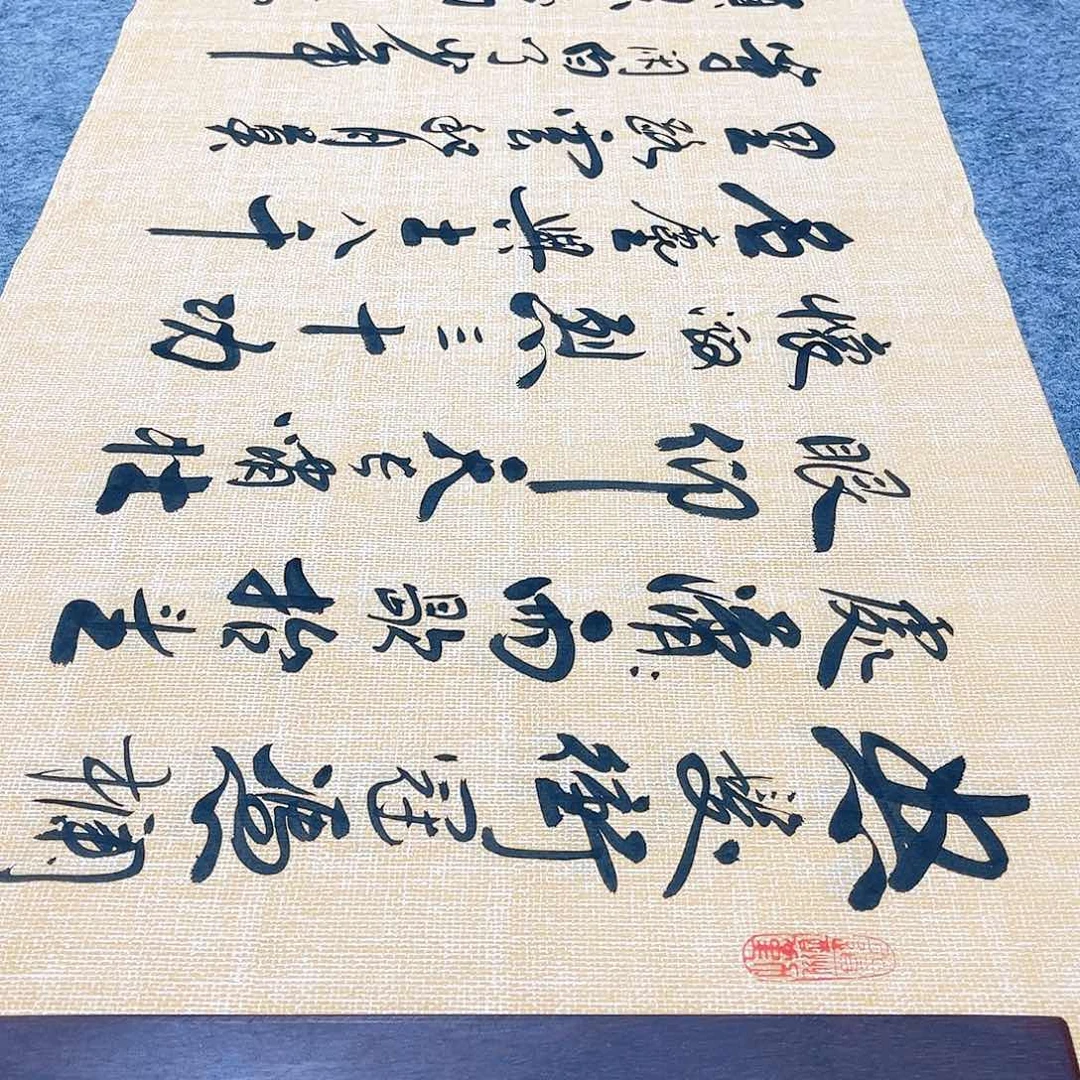 怒髮衝冠憑欄
處瀟々雨歇抬望
眼仰天長嘯壯
懷激烈三十功
名塵與土八千
里路雲和月莫
等閒白了少年